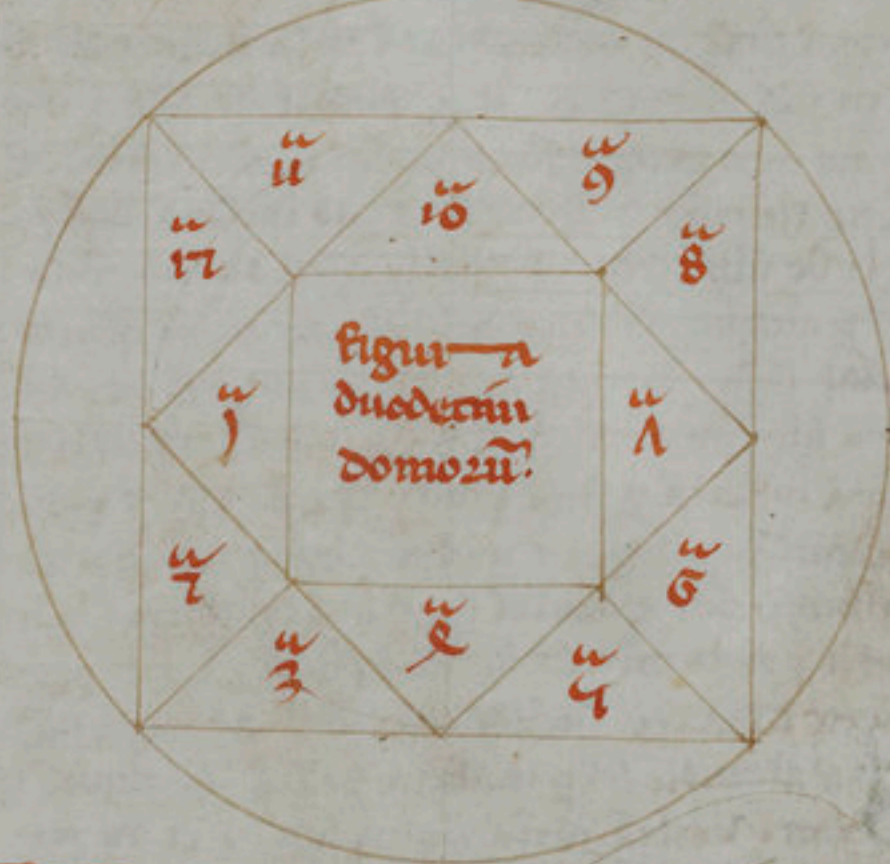 11
10
9
12
8
figura
duodecim
domorū.
1
7
2
6
3
4
5